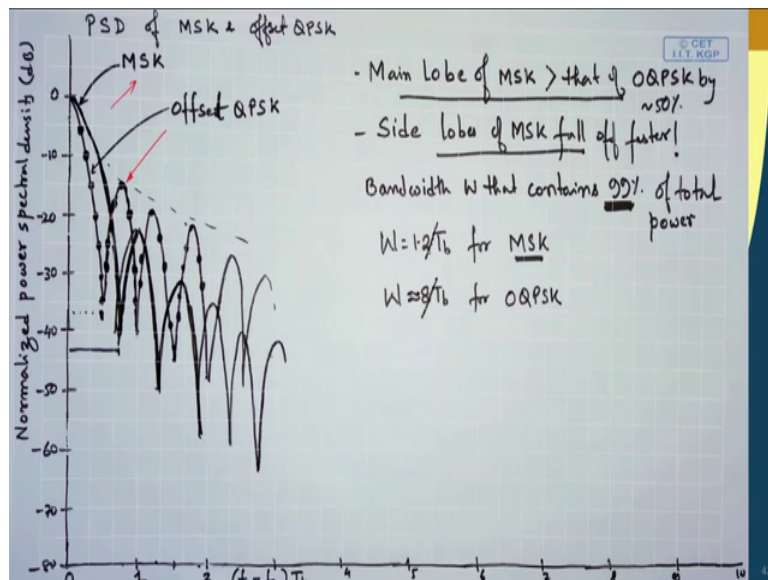 PSD of MSK & offset QPSK
© CET
I.I.T. KGP
MSK
Offset QPSK
Normalized power spectral density (dB)
0
-10
-20
-30
-40
-50
-60
-70
-80
- Main Lobe of MSK > that of OQPSK by
~50%.
- Side lobes of MSK fall off faster!
Bandwidth W that contains 99% of total
power
W=1.2/Tb for MSK
W≈8/Tb for OQPSK
0 1 2 4 5 7 8 9 10